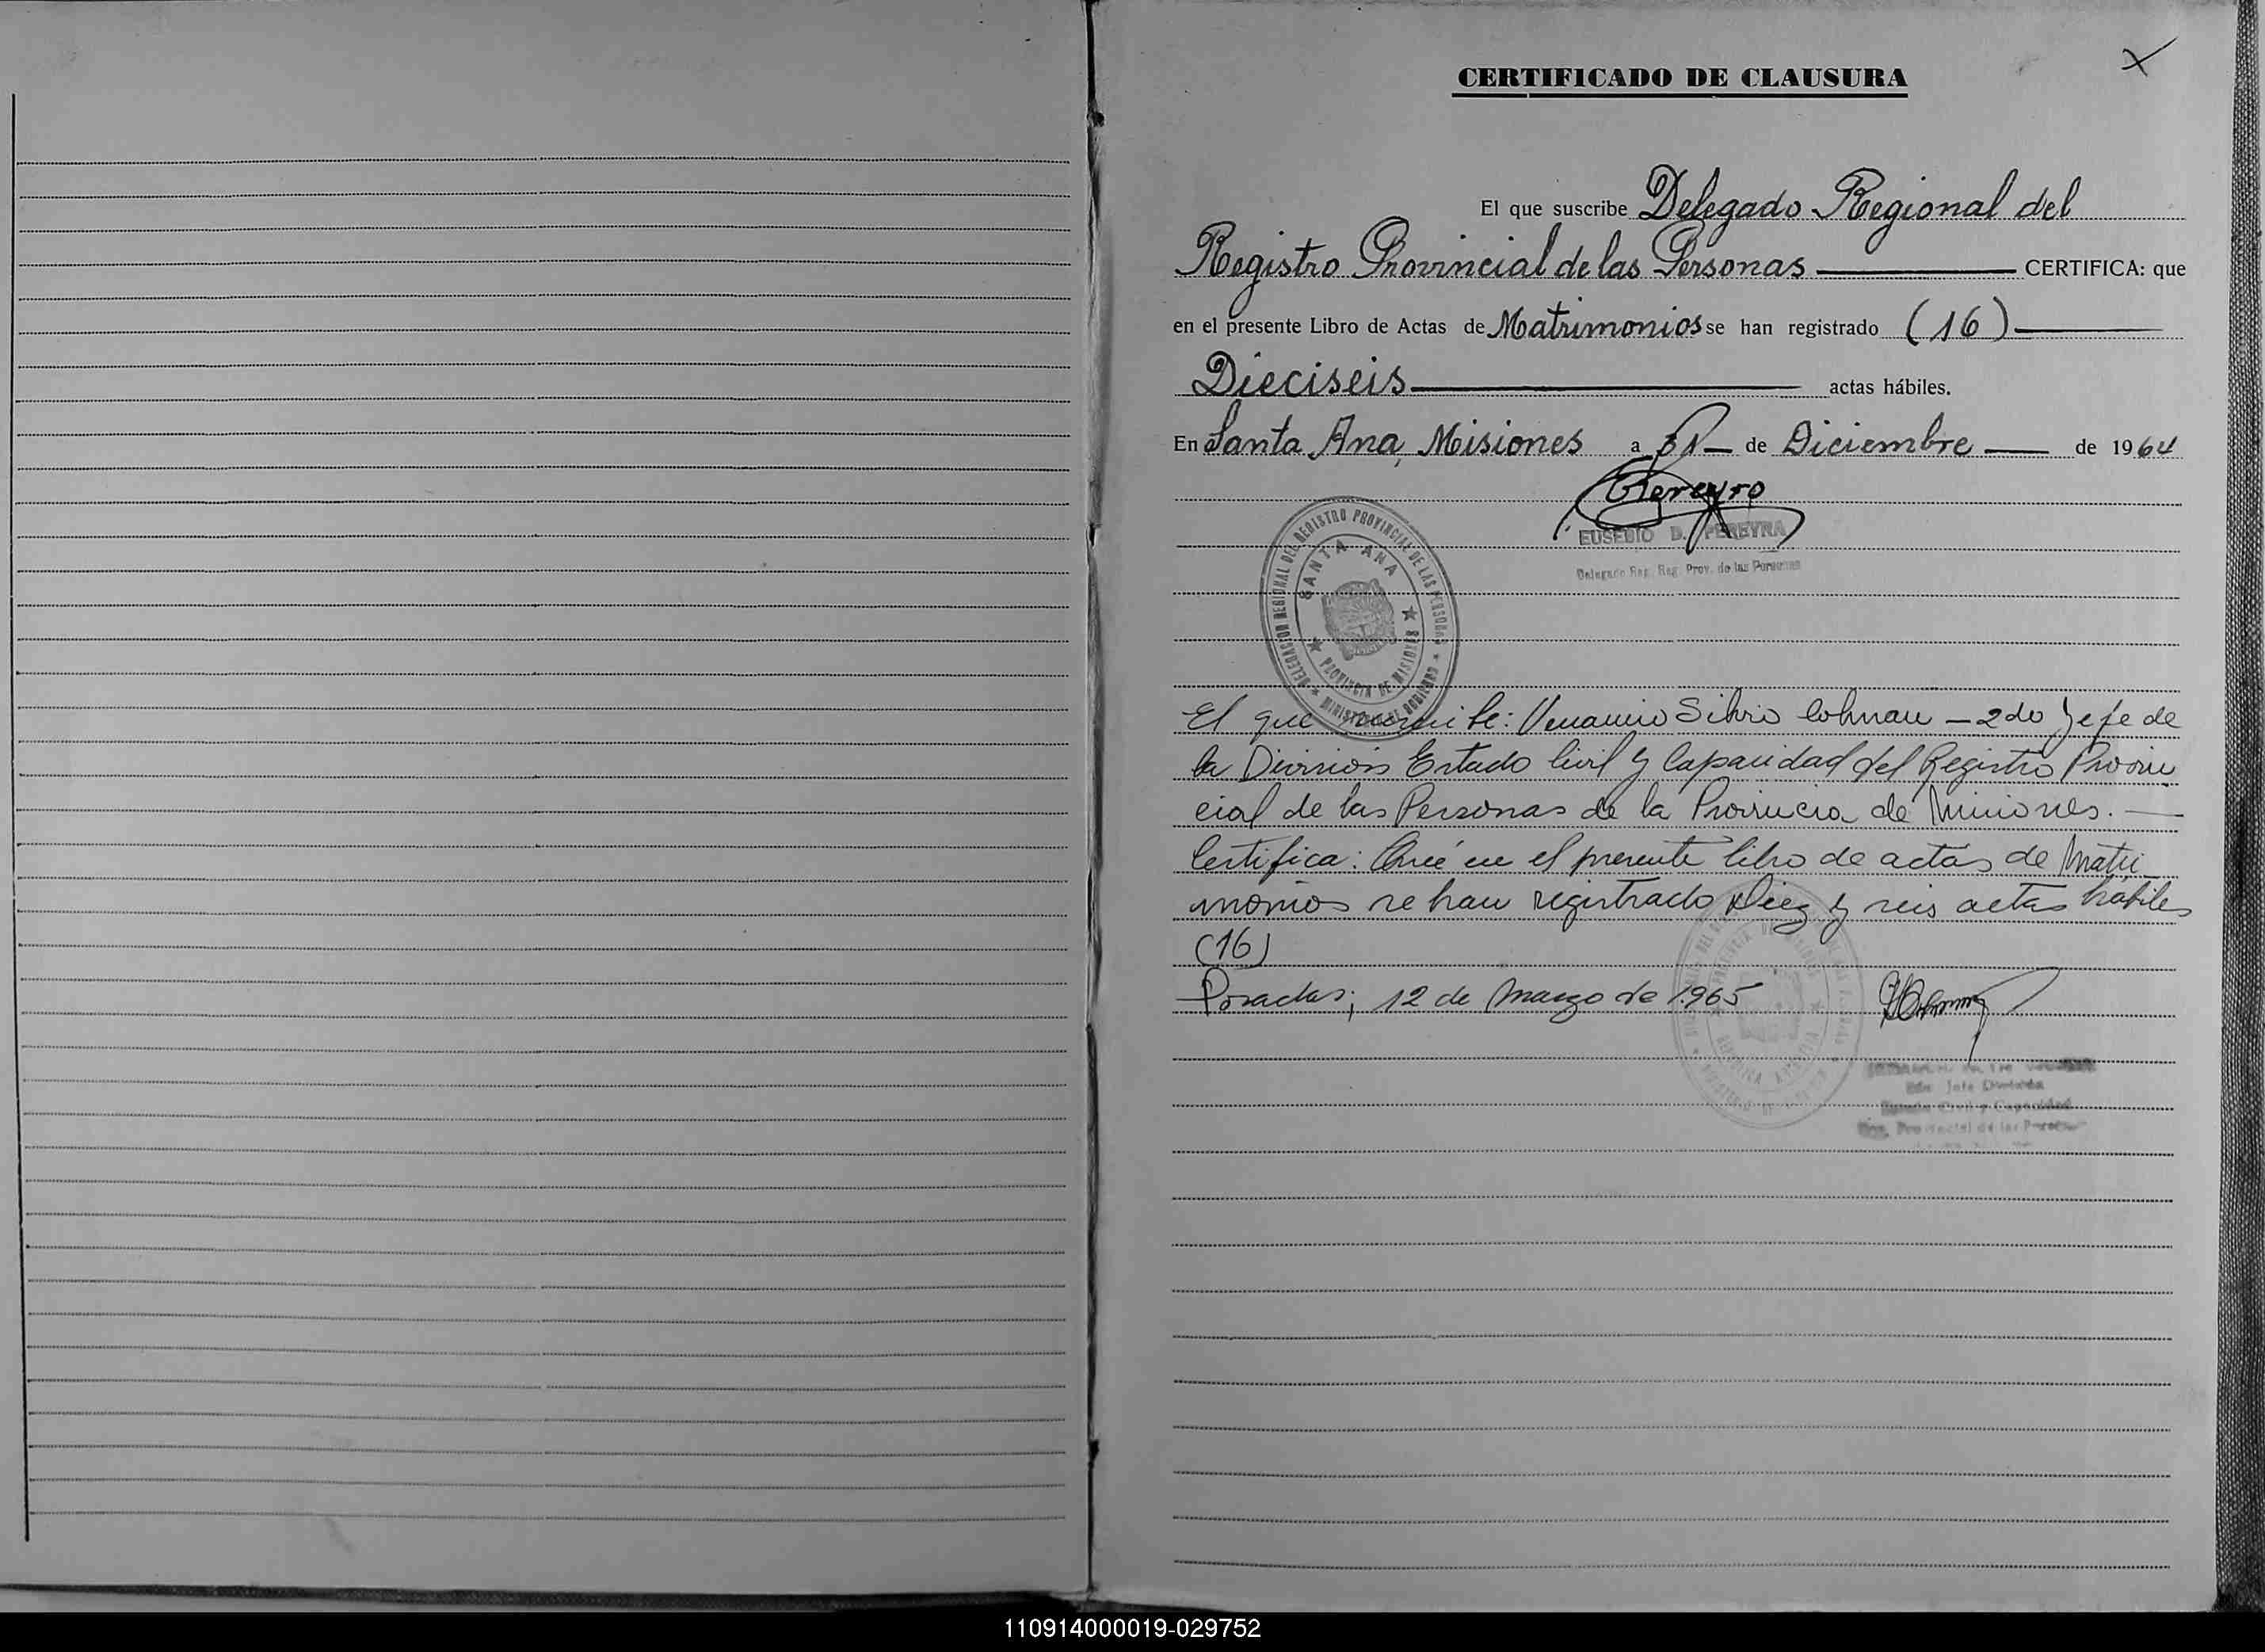 CERTIFICADO DE CLAUSURA
El que suscribe Delegado Regional del
Registro Provincial de las Personas CERTIFICA: que
en el presente Libro de Actas de Matrimonios se han registrado (16)
Dieciseis actas hábiles.
En Santa Ana, Misiones a 31 de Diciembre de 1964
Pereyra
EUSEBIO D. PEREYRA
Delegado Reg. Reg. Prov. de las Personas
DELEGACION REGIONAL DEL REGISTRO PROVINCIAL DE LAS PERSONAS
MINISTERIO DE GOBIERNO
SANTA ANA
PROVINCIA DE MISIONES
El que suscribe: Venancio Silvio Colman - 2do Jefe de
la División Estado Civil y Capacidad del Registro Provin
cial de las Personas de la Provincia de Misiones.
Certifica: Que en el presente libro de actas de Matri
monios se han registrado Diez y seis actas hábiles
(16)
Posadas; 12 de Marzo de 1965
2do. Jefe División
Estado Civil y Capacidad
Reg. Provincial de las Personas
REPUBLICA ARGENTINA
110914000019-029752